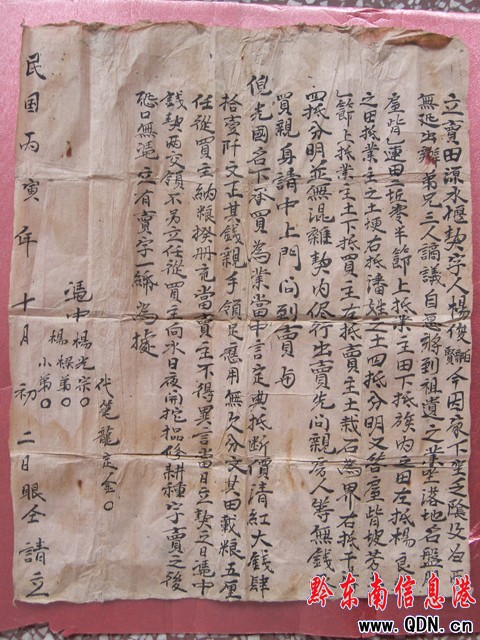 立賣田涼水堰契字人楊俊 今因家下
無延出辦弟兄三人謫議自愿將到祖遺之業坐落地名盤
連田一坵叁半節上抵業主田下抵族内之田左抵楊良
之田抵業主之土埂右抵潘姓之土四抵分明又 坡方
節上抵業主土下抵買主右抵賣主土栽石為界右抵
四抵分明並無混雜契内俻行出賣先問親房人等無錢
買親身請中上門问到賣與
倪光國名下承買為業當中言定典抵断價清紅大錢肆
拾壹阡文正其錢親手領足應用無欠分文其田載粮五厘
任從買主納粮撥册 當賣主不得異言當日立契之日憑中
錢契兩交領不另立任從買主向水日夜開挖 修耕種字賣之後
恐口無憑立有賣字一紙為據
代笔龍定金〇
憑中楊光宗〇
楊 弟〇
小弟〇
民国丙寅年十月初二日眼仝請立
黔东南信息港
www.QDN.cn